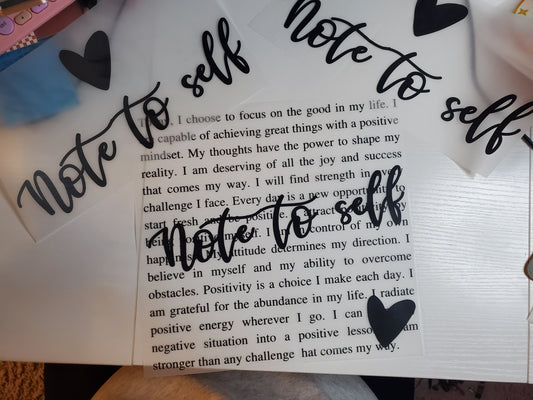 Note to self
Note to self
I choose to focus on the good in my life. I
capable of achieving great things with a positive
mindset. My thoughts have the power to shape my
reality. I am deserving of all the joy and success
that comes my way. I will find strength in
challenge I face. Every day is a new opportunity to
start fresh and be positive. I attract
Note to self
control of my own
attitude determines my direction. I
believe in myself and my ability to overcome
obstacles. Positivity is a choice I make each day. I
am grateful for the abundance in my life. I radiate
positive energy wherever I go. I can
negative situation into a positive
stronger than any challenge hat comes my way.